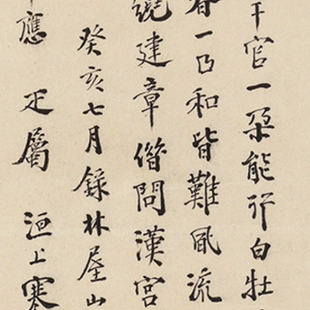 官一朶能行白牡
春一曲和皆難風流
繞建章借問漢宮
癸亥七月録林屋山
應 疋屬 洹上寒